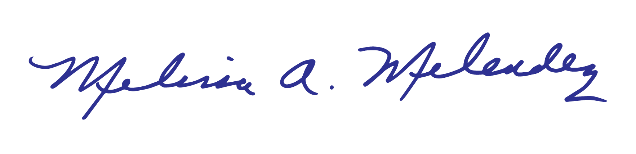 Melissa A. Melendez